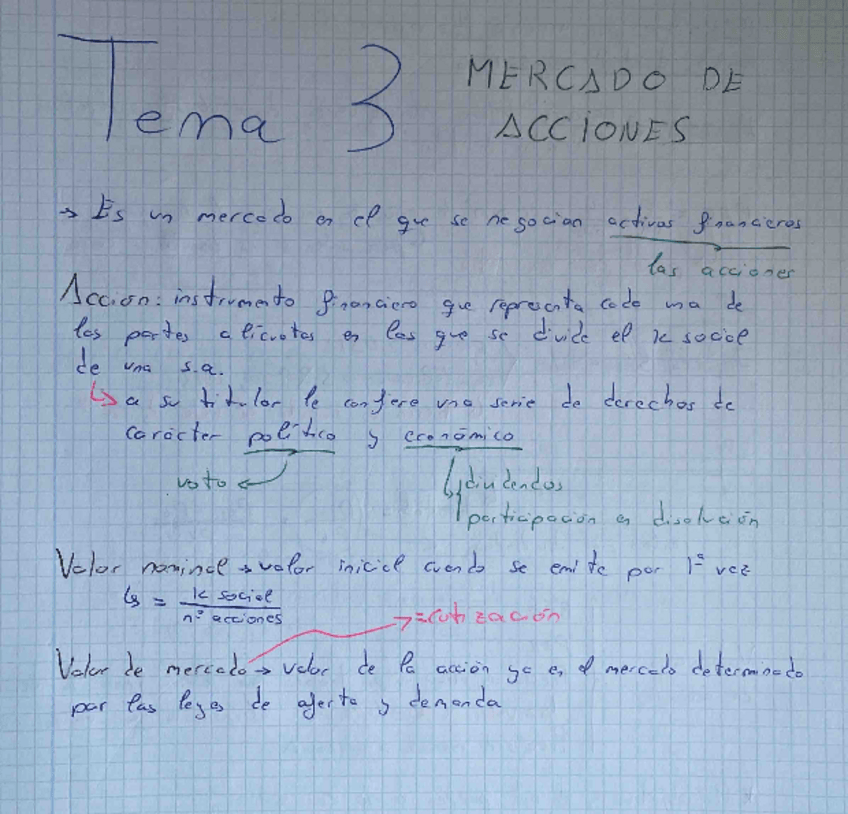 Tema 3 MERCADO DE
ACCIONES
→ Es un mercado en el que se negocian activos financieros
las acciones
Acción: instrumento financiero que representa cada una de
las partes alícuotas en las que se divide el K social
de una s.a.
↳ a su titular le confiere una serie de derechos de
carácter político y económico
voto ↳ dividendos
participación en disolución
Valor nominal → valor inicial cuando se emite por 1ª vez
↳ = K social
nº acciones
→ = cotización
Valor de mercado → valor de la acción ya en el mercado determinado
por las leyes de oferta y demanda